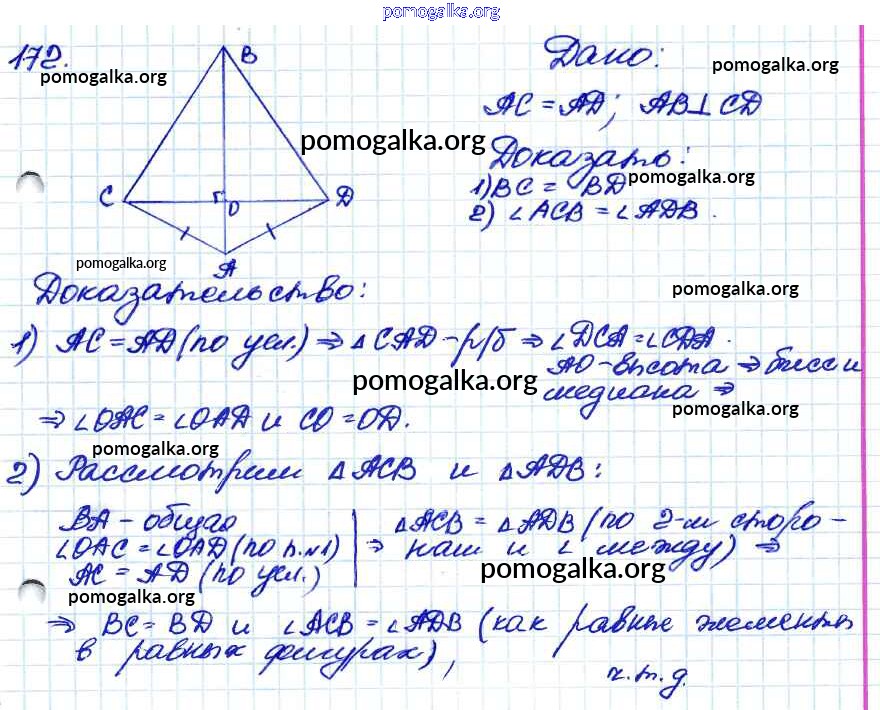 pomogalka.org
172.
B
Дано:
pomogalka.org
pomogalka.org
AC = AD; AB⊥CD
pomogalka.org
Доказать:
1) BC = BD pomogalka.org
2) ∠ACB = ∠ADB.
C
O
D
A
pomogalka.org
Доказательство:
pomogalka.org
1) AC = AD (по усл.) ⇒ △CAD – р/б ⇒ ∠DCA = ∠CDA.
AO – высота ⇒ бисс и
pomogalka.org
медиана ⇒
⇒ ∠OAC = ∠OAD и CO = OD.
pomogalka.org
pomogalka.org
2) Рассмотрим △ACB и △ADB:
BA – общая
∠OAC = ∠OAD (по п.№1)
AC = AD (по усл.)
⇒ △ACB = △ADB (по 2-м сторо-
нам и ∠ между) ⇒
pomogalka.org
pomogalka.org
⇒ BC = BD и ∠ACB = ∠ADB (как равные элементы
в равных фигурах),
ч.т.д.